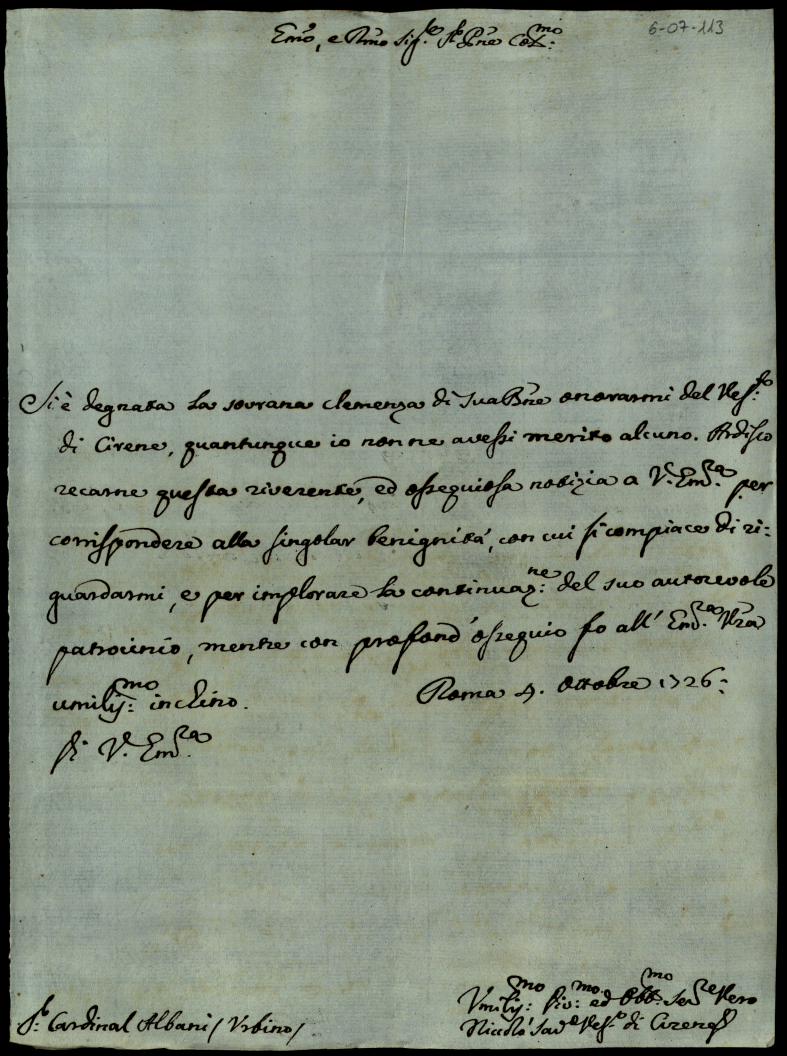 6-07-113
Emo, e Rmo Sig.re Sr. Pne Col.mo
Si è degnata la sovrana clemenza di Sua Bne onorarmi del Vesc.do
di Cirene, quantunque io non ne avessi merito alcuno. Ardisco
recarne questa riverente, ed ossequiosa notizia a V. Em.za per
corrispondere alla singolar benignità, con cui si compiace di ri:
guardarmi, e per implorare la continuaz.ne del suo autorevole
patrocinio, mentre con profond' ossequio fo all' Em.za Vra
umiliss.mo inchino. Roma 4. Ottobre 1726:
Di V. Em.za
Sr. Cardinal Albani / Urbino /
Umiliss.mo Div.mo ed Obb.mo Ser.re Vero
Niccolò Sav.o Vesc.o di Cirene